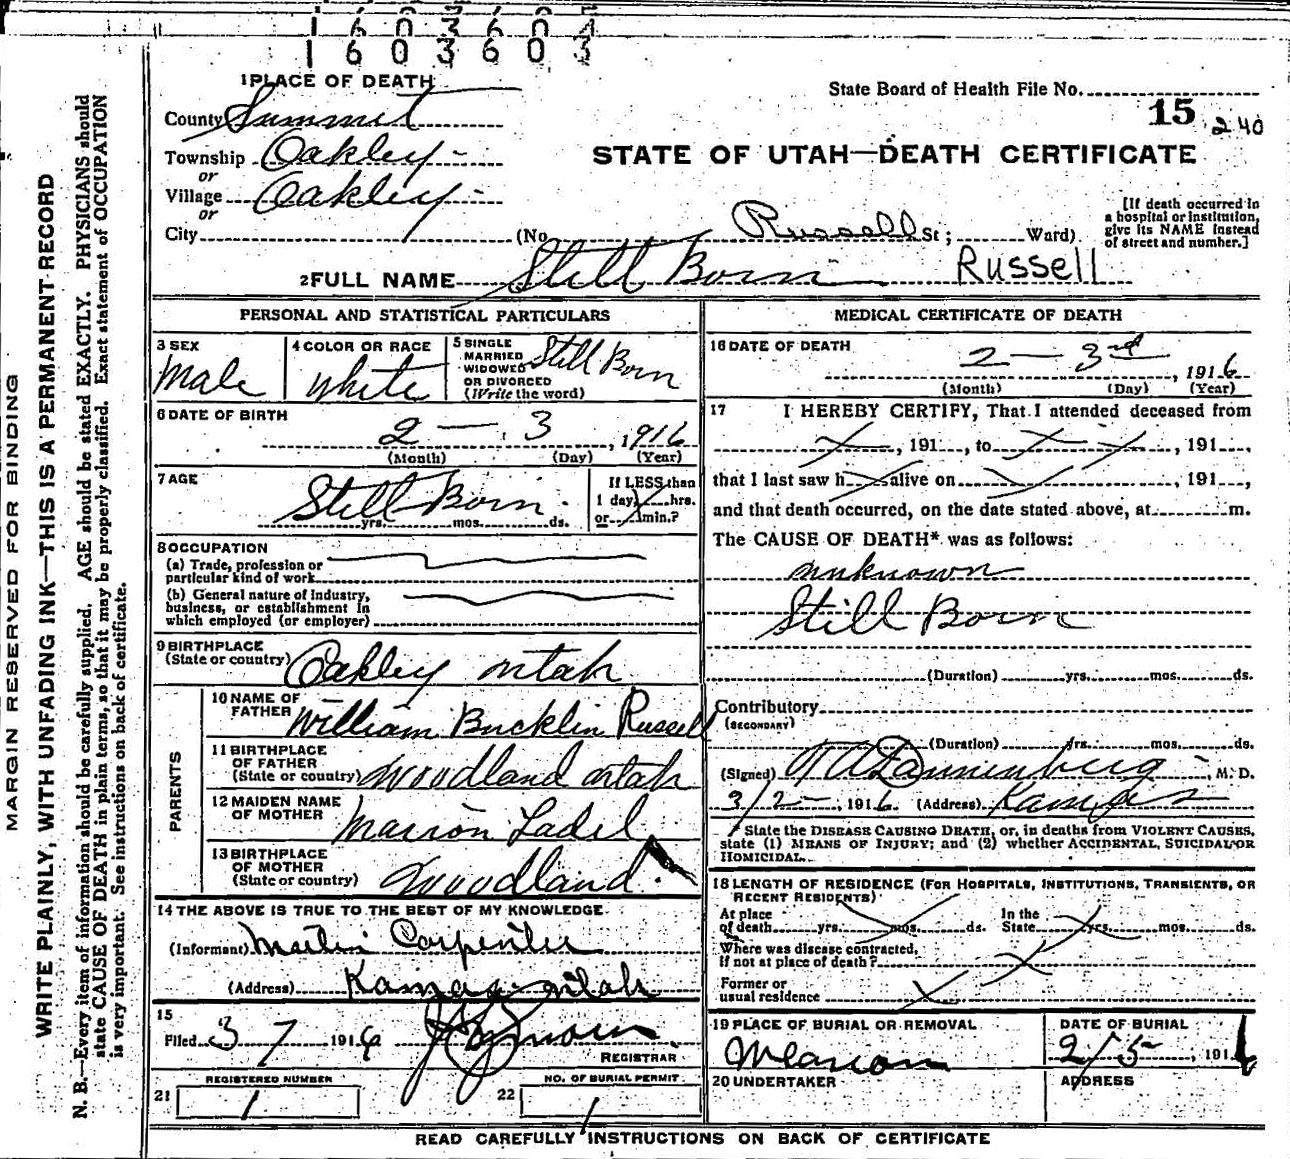 1 6 0 3 6 0 4
1 6 0 3 6 0 3
1 PLACE OF DEATH
State Board of Health File No.
15 240
County Summit
Township Oakley
or
Village Oakley
or
City (No. Russell St; Ward)
STATE OF UTAH—DEATH CERTIFICATE
[If death occurred in
a hospital or institution,
give its NAME instead
of street and number.]
2 FULL NAME Still Born Russell
PERSONAL AND STATISTICAL PARTICULARS
3 SEX
Male
4 COLOR OR RACE
White
5 SINGLE
MARRIED
WIDOWED
OR DIVORCED
(Write the word)
Still Born
6 DATE OF BIRTH
2 — 3, 1916
(Month) (Day) (Year)
7 AGE
Still Born
yrs. mos. ds.
If LESS than
1 day, hrs.
or min.?
8 OCCUPATION
(a) Trade, profession or
particular kind of work
(b) General nature of Industry,
business, or establishment in
which employed (or employer)
9 BIRTHPLACE
(State or country) Oakley utah
PARENTS
10 NAME OF
FATHER William Bucklin Russell
11 BIRTHPLACE
OF FATHER
(State or country) Woodland utah
12 MAIDEN NAME
OF MOTHER Marion Ladel
13 BIRTHPLACE
OF MOTHER
(State or country) Woodland
14 THE ABOVE IS TRUE TO THE BEST OF MY KNOWLEDGE
(Informant) Carpenter
(Address) Kamas utah
15
Filed 3 7 1916
REGISTRAR
REGISTERED NUMBER
21 1
NO. OF BURIAL PERMIT
22 1
MEDICAL CERTIFICATE OF DEATH
16 DATE OF DEATH
2 — 3rd, 1916
(Month) (Day) (Year)
17 I HEREBY CERTIFY, That I attended deceased from
, 191 , to , 191 ,
that I last saw h alive on , 191 ,
and that death occurred, on the date stated above, at m.
The CAUSE OF DEATH* was as follows:
unknown
Still Born
(Duration) yrs. mos. ds.
Contributory
(SECONDARY)
(Duration) yrs. mos. ds.
(Signed) Dannenberg, M. D.
3/2, 1916 (Address) Kamas
* State the DISEASE CAUSING DEATH, or, in deaths from VIOLENT CAUSES,
state (1) MEANS OF INJURY; and (2) whether ACCIDENTAL, SUICIDAL, OR
HOMICIDAL.
18 LENGTH OF RESIDENCE (FOR HOSPITALS, INSTITUTIONS, TRANSIENTS, OR
RECENT RESIDENTS)
At place
of death yrs. mos. ds.
In the
State yrs. mos. ds.
Where was disease contracted,
If not at place of death?
Former or
usual residence
19 PLACE OF BURIAL OR REMOVAL
Marion
DATE OF BURIAL
2/5, 1916
20 UNDERTAKER
ADDRESS
READ CAREFULLY INSTRUCTIONS ON BACK OF CERTIFICATE
MARGIN RESERVED FOR BINDING
WRITE PLAINLY, WITH UNFADING INK—THIS IS A PERMANENT RECORD
N. B.—Every item of information should be carefully supplied. AGE should be stated EXACTLY. PHYSICIANS should
state CAUSE OF DEATH in plain terms, so that it may be properly classified. Exact statement of OCCUPATION
is very important. See instructions on back of certificate.